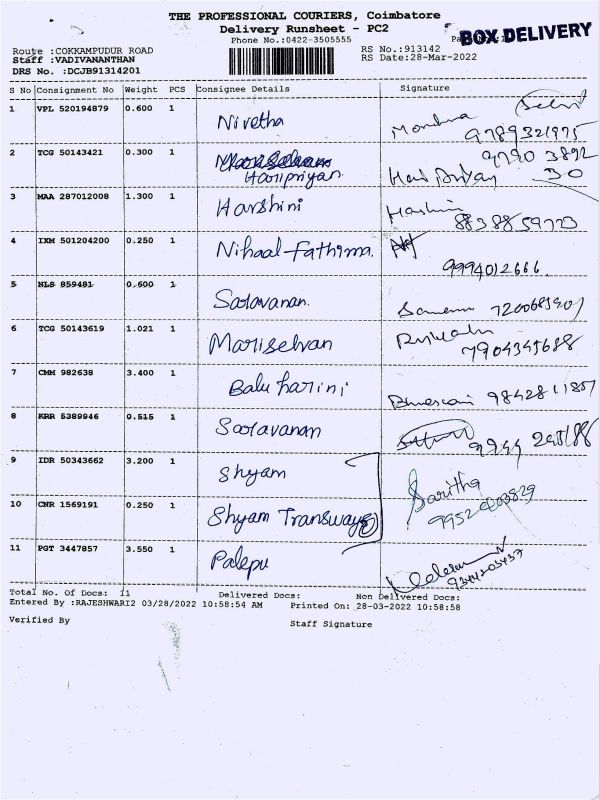 THE PROFESSIONAL COURIERS, Coimbatore
Delivery Runsheet - PC2
BOX DELIVERY
Phone No.:0422-3505555
Route :COKKAMPUDUR ROAD
RS No.:913142
Staff :VADIVANANTHAN
RS Date:28-Mar-2022
DRS No. :DCJB91314201
S No Consignment No Weight PCS Consignee Details Signature
1 VPL 520194879 0.600 1 Nivetha
9789321975
2 TCG 50143421 0.300 1
Haripriyan
97903892
30
3 MAA 287012008 1.300 1 Harshini Harshini
8838859723
4 IXM 501204200 0.250 1 Nihaal-Fathima.
9994012666.
5 NLS 859481 0.600 1 Saravanan.
6 TCG 50143619 1.021 1 Mariselvan
7904345688
7 CMM 982638 3.400 1 Balu harini
9842811857
8 KRR 5389946 0.515 1 Saravanan
9 IDR 50343662 3.200 1 Shyam Saritha
10 CNR 1569191 0.250 1 Shyam Transways
11 PGT 3447857 3.550 1 Palepu
Total No. of Docs: 11 Delivered Docs: Non Delivered Docs:
Entered By :RAJESHWARI2 03/28/2022 10:58:54 AM Printed On: 28-03-2022 10:58:58
Verified By
Staff Signature